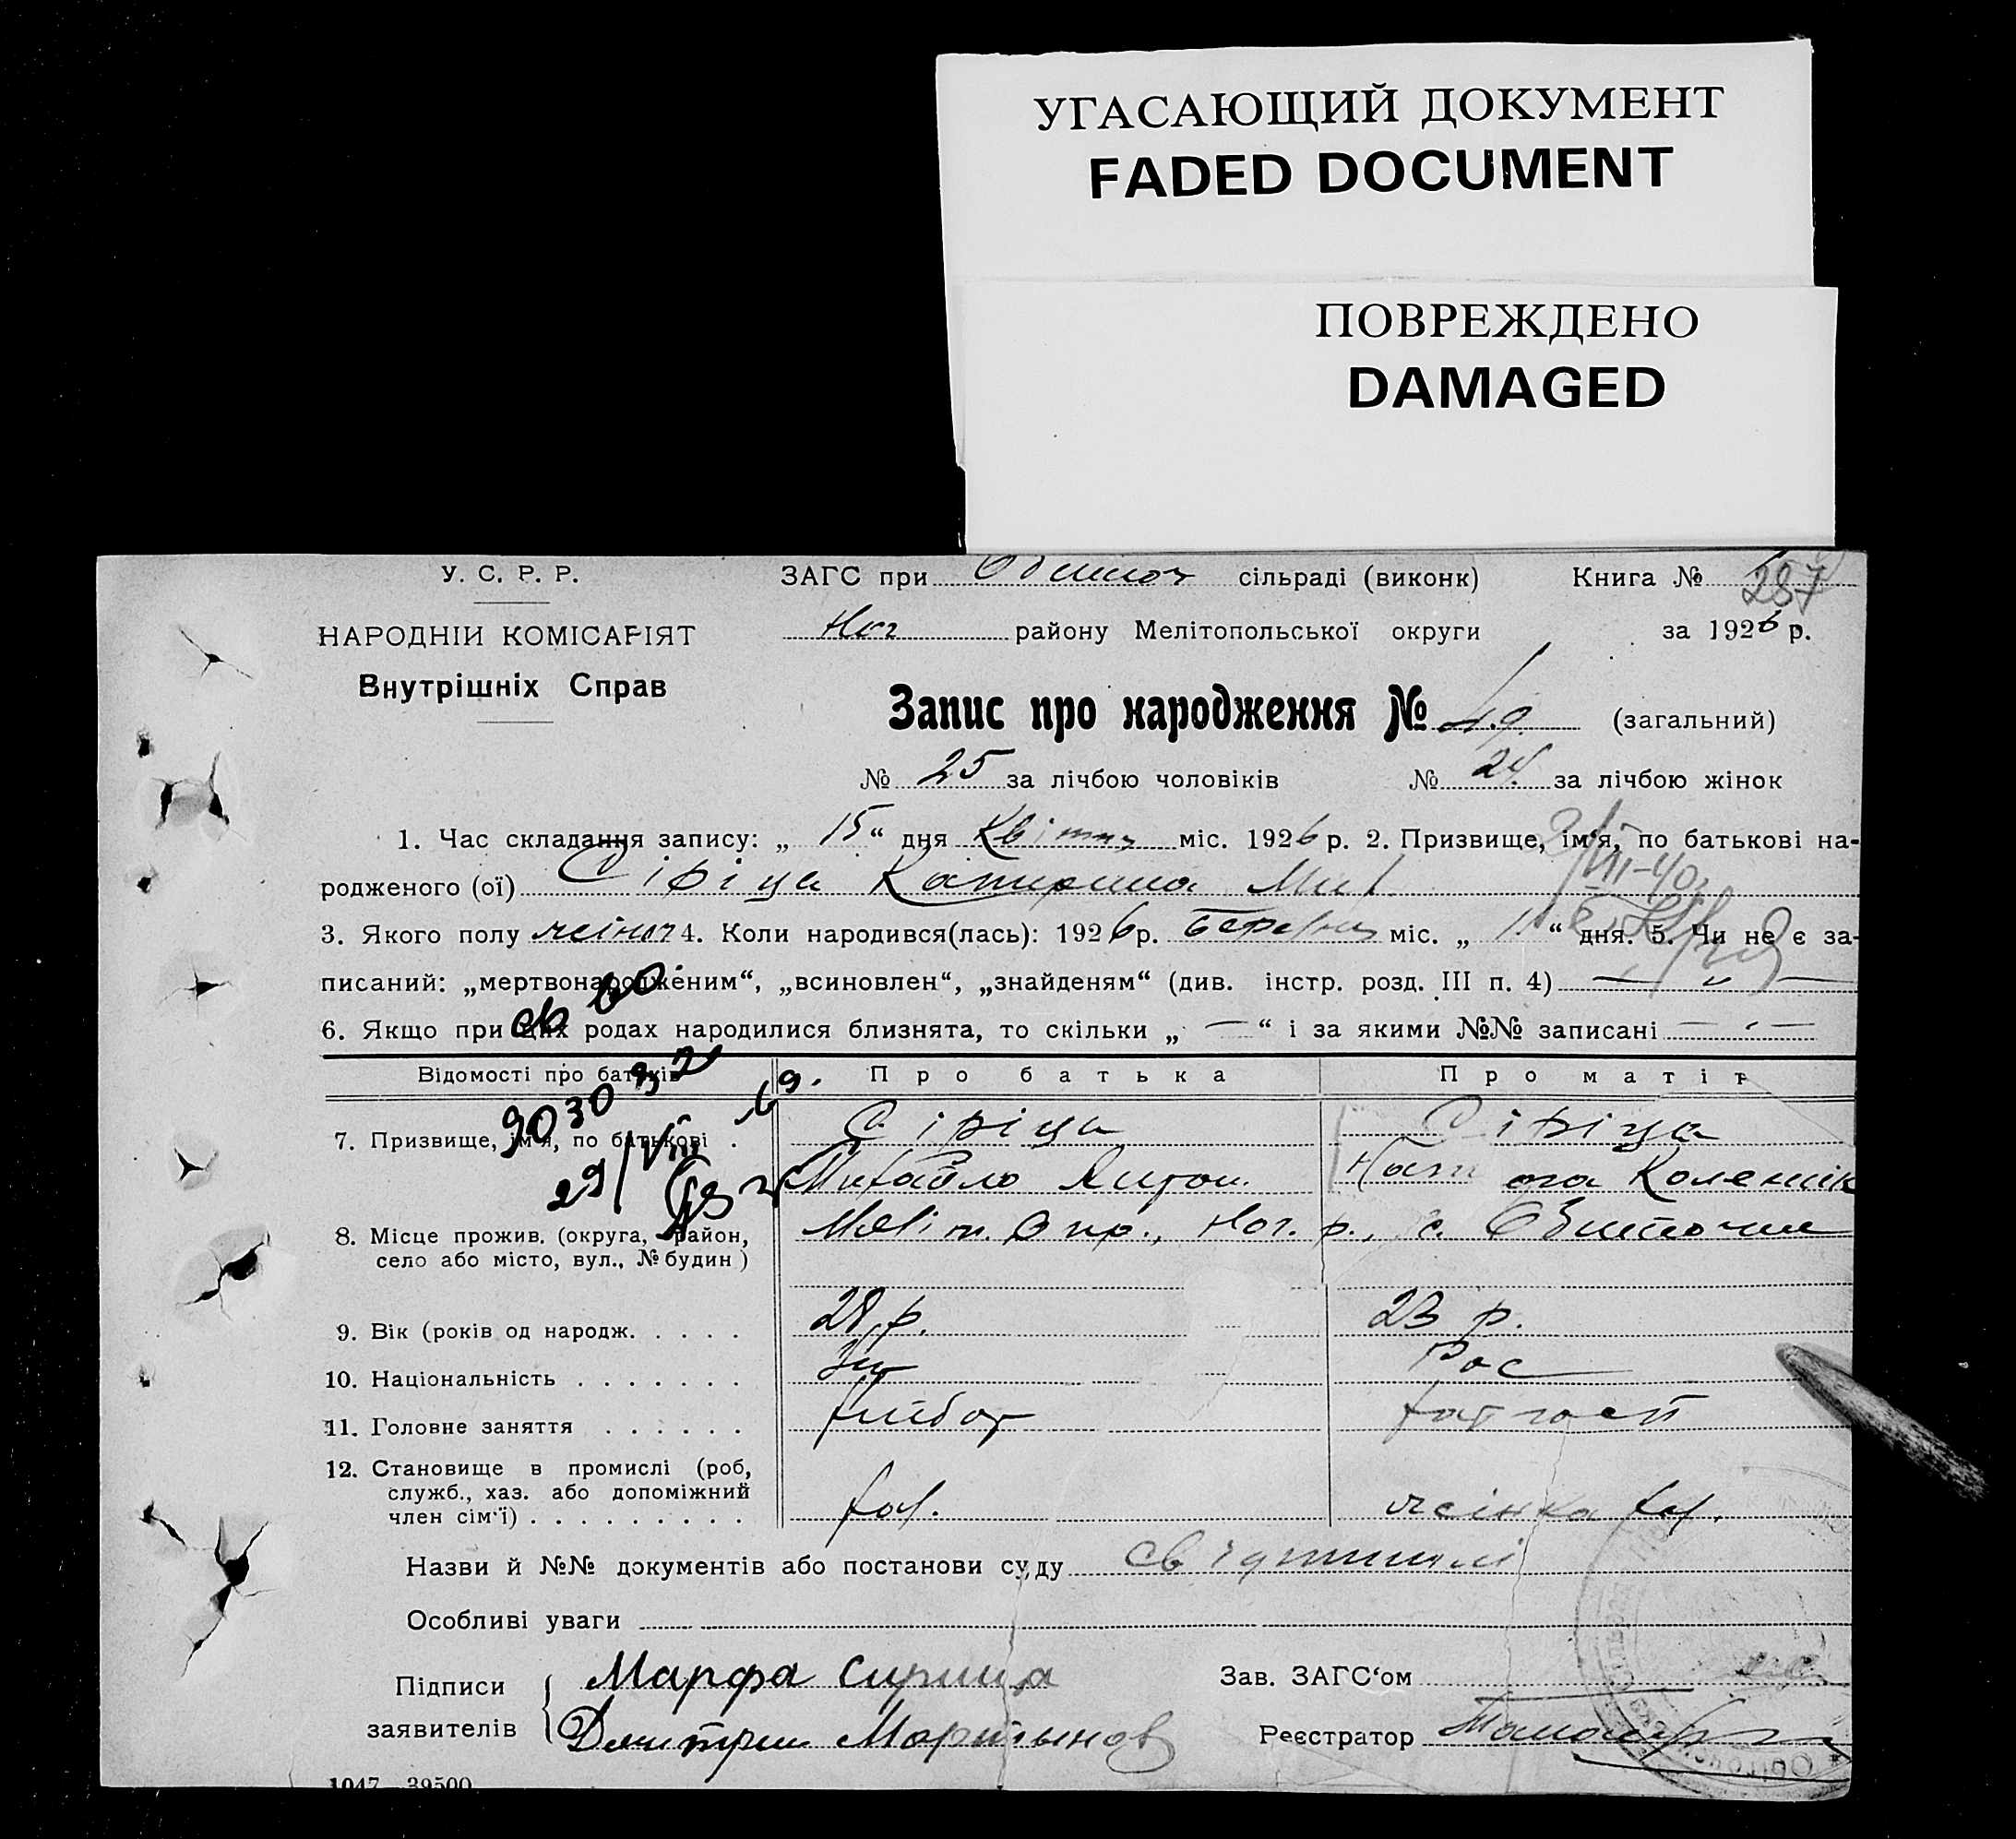 УГАСАЮЩИЙ ДОКУМЕНТ
FADED DOCUMENT
ПОВРЕЖДЕНО
DAMAGED
У. С. Р. Р.
ЗАГС при сільраді (виконк) Книга № 287
НАРОДНІИ КОМІСАРІЯТ
Ног району Мелітопольської округи за 1926 р.
Внутрішніх Справ
Запис про народження № 49 (загальний)
№ 25 за лічбою чоловіків № 24 за лічбою жінок
1. Час складання запису: „ 15 “ дня Квітня міс. 1926 р. 2. Призвище, ім‘я, по батькові на-
родженого (ої) Сіріца Катерина Мих
3. Якого полу жіноч 4. Коли народився(лась): 1926 р. Березня міс. „ 11 “ дня. 5. Чи не є за-
писаний: „мертвонародженим“, „всиновлен“, „знайденям“ (див. інстр. розд. III п. 4) — „ —
6. Якщо при цих родах народилися близнята, то скільки „ — “ і за якими №№ записані — „ —
св во
903032
29/VIII
Відомості про батьків Про батька Про матір
7. Призвище, ім‘я, по батькові . Сіріца Сіріца
Михайло Антон. Колесник
8. Місце прожив. (округа, район, Меліт. Окр., Ног. р., с. Обиточне
село або місто, вул., № будин)
9. Вік (років од народж. . . . . 28 р. 23 р.
10. Національність . . . . . . . Рос
11. Головне заняття . . . . . . хлібор
12. Становище в промислі (роб,
служб., хаз. або допоміжний
член сім‘ї) . . . . . . . . . хаз. жінка хаз.
Назви й №№ документів або постанови суду
Особливі уваги
Підписи Марфа Сирица Зав. ЗАГС‘ом
заявителів Дмитрии Мартынов Реєстратор
1047—39500